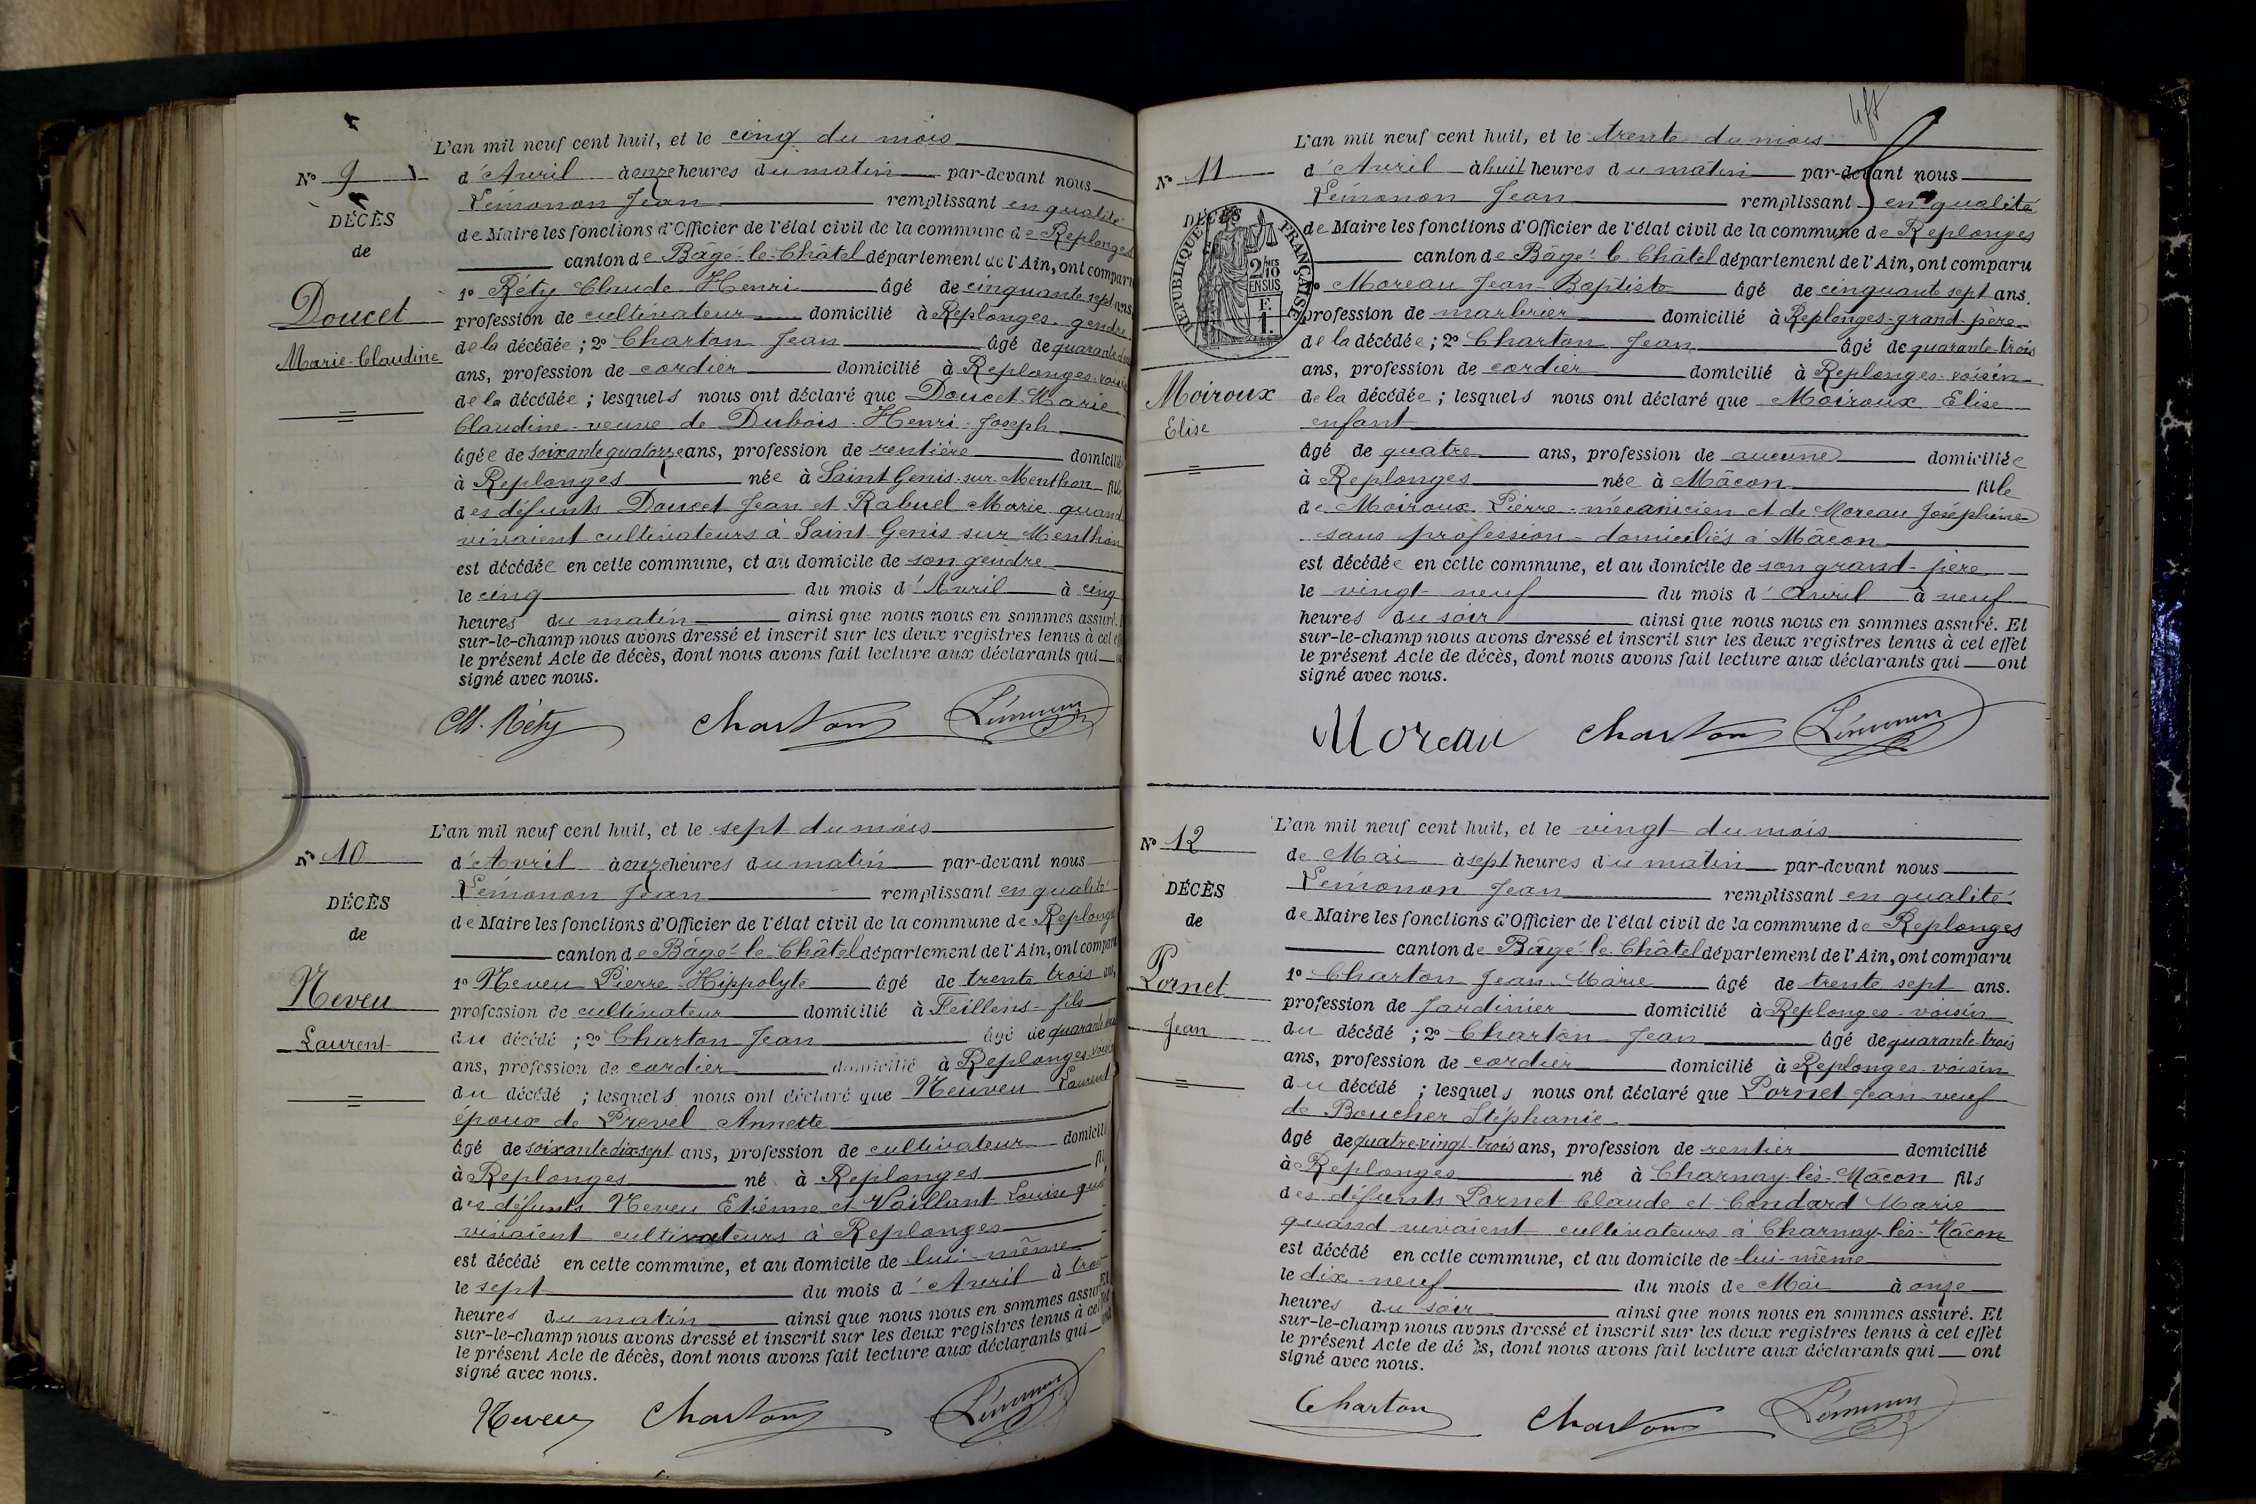 L'an mil neuf cent huit, et le cinq du mois
N° 9
d'Avril à onze heures du matin par-devant nous
Lémonon Jean remplissant en qualité
DÉCÈS
de Maire les fonctions d'Officier de l'état civil de la commune de Replonges
de
canton de Bâgé-le-Châtel département de l'Ain, ont comparu
1° Réty Claude Henri âgé de cinquante sept ans.
Doucet
profession de cultivateur domicilié à Replonges gendre
de la décédée ; 2° Charton Jean âgé de quarante
Marie-Claudine
ans, profession de cordier domicilié à Replonges voisin
de la décédée ; lesquels nous ont déclaré que Doucet Marie
Claudine veuve de Dubois Henri Joseph
âgée de soixante quatorze ans, profession de rentière domicilié
à Replonges née à Saint Genis-sur-Menthon fille
des défunts Doucet Jean et Rabuel Marie quand
vivaient cultivateurs à Saint Genis sur Menthon
est décédée en cette commune, et au domicile de son gendre
le cinq du mois d'Avril à cinq
heures du matin ainsi que nous nous en sommes assuré.
sur-le-champ nous avons dressé et inscrit sur les deux registres tenus à cet
le présent Acte de décès, dont nous avons fait lecture aux déclarants qui
signé avec nous.
Réty Charton Lémonon
L'an mil neuf cent huit, et le sept du mois
N° 10
d'Avril à onze heures du matin par-devant nous
Lémonon Jean remplissant en qualité
DÉCÈS
de Maire les fonctions d'Officier de l'état civil de la commune de Replonges
de
canton de Bâgé-le-Châtel département de l'Ain, ont comparu
1° Neveu Pierre-Hippolyte âgé de trente trois ans,
Neveu
profession de cultivateur domicilié à Seillens fils
du décédé ; 2° Charton Jean âgé de quarante
Laurent
ans, profession de cordier domicilié à Replonges voisin
du décédé ; lesquels nous ont déclaré que Neuveu Laurent
époux de Prevel Annette
âgé de soixante dix-sept ans, profession de cultivateur domicilié
à Replonges né à Replonges
des défunts Neveu Etienne et Vaillant Louise
vivaient cultivateurs à Replonges
est décédé en cette commune, et au domicile de lui-même
le sept du mois d'Avril à trois
heures du matin ainsi que nous nous en sommes assuré. Et
sur-le-champ nous avons dressé et inscrit sur les deux registres tenus à cet
le présent Acte de décès, dont nous avons fait lecture aux déclarants qui ont
signé avec nous.
Neveu Charton Lémonon
L'an mil neuf cent huit, et le trente du mois
N° 11
d'Avril à huit heures du matin par-devant nous
Lémonon Jean remplissant en qualité
DÉCÈS
de Maire les fonctions d'Officier de l'état civil de la commune de Replonges
RÉPUBLIQUE FRANÇAISE
2/10 EN SUS
canton de Bâgé-le-Châtel département de l'Ain, ont comparu
1° Moreau Jean-Baptiste âgé de cinquante sept ans.
profession de marbrier domicilié à Replonges-grand-père
de la décédée ; 2° Charton Jean âgé de quarante-trois
ans, profession de cordier domicilié à Replonges-voisin
Moiroux
de la décédée ; lesquels nous ont déclaré que Moiroux Elise
Elise
enfant
âgé de quatre ans, profession de aucune domiciliée
à Replonges née à Mâcon fille
de Moiroux Pierre-mécanicien et de Moreau Joséphine
sans profession-domiciliés à Mâcon
est décédée en cette commune, et au domicile de son grand-père
le vingt-neuf du mois d'avril à neuf
heures du soir ainsi que nous nous en sommes assuré. Et
sur-le-champ nous avons dressé et inscrit sur les deux registres tenus à cet effet
le présent Acte de décès, dont nous avons fait lecture aux déclarants qui ont
signé avec nous.
Moreau Charton Lémonon
L'an mil neuf cent huit, et le vingt du mois
N° 12
de Mai à sept heures du matin par-devant nous
Lémonon Jean remplissant en qualité
DÉCÈS
de Maire les fonctions d'Officier de l'état civil de la commune de Replonges
de
canton de Bâgé-le-Châtel département de l'Ain, ont comparu
1° Charton Jean-Marie âgé de trente sept ans.
Pornet
profession de Jardinier domicilié à Replonges-voisin
Jean
du décédé ; 2° Charton Jean âgé de quarante-trois
ans, profession de cordier domicilié à Replonges-voisin
du décédé ; lesquels nous ont déclaré que Pornet Jean veuf
de Boucher Stéphanie
âgé de quatre-vingt-trois ans, profession de rentier domicilié
à Replonges né à Charnay-lès-Mâcon fils
des défunts Pornet Claude et Condard Marie
quand vivaient cultivateurs à Charnay-lès-Mâcon
est décédé en cette commune, et au domicile de lui-même
le dix-neuf du mois de Mai à onze
heures du soir ainsi que nous nous en sommes assuré. Et
sur-le-champ nous avons dressé et inscrit sur les deux registres tenus à cet effet
le présent Acte de décès, dont nous avons fait lecture aux déclarants qui ont
signé avec nous.
Charton Charton Lémonon